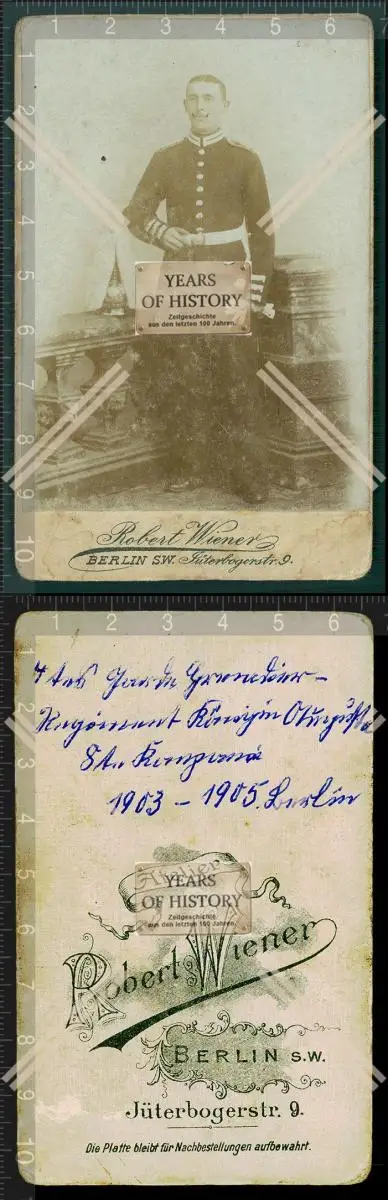 YEARS
OF HISTORY
Zeitgeschichte
aus den letzten 100 Jahren.
Robert Wiener
BERLIN S.W. Jüterbogerstr. 9.
4tes Garde Grenadier-
Regiment Königin Augusta
8te Kompanie
1903 - 1905. Berlin
Atelier
YEARS
OF HISTORY
Zeitgeschichte
aus den letzten 100 Jahren.
Robert Wiener
BERLIN S.W.
Jüterbogerstr. 9.
Die Platte bleibt für Nachbestellungen aufbewahrt.